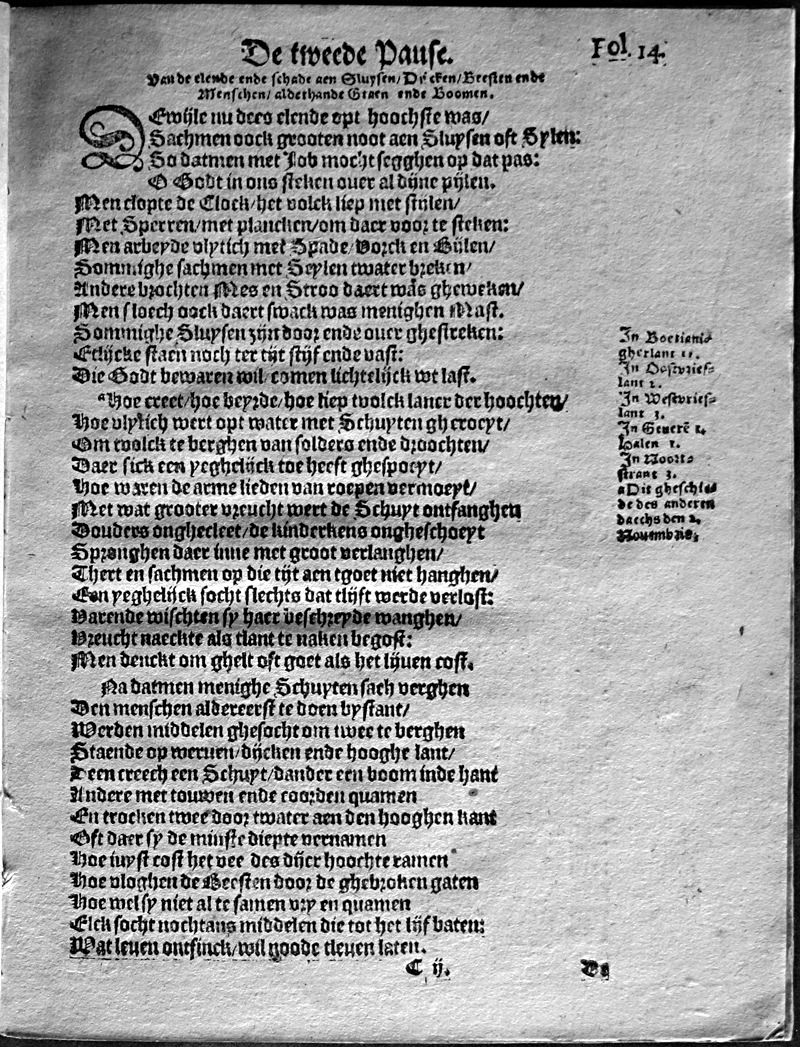 De tweede Pause.
Fol. 14.
Van de elende ende schade aen Sluysen/ Dijcken/ Beesten ende
Menschen/ alderhande Graen ende Boomen.
DEwijle nu dees elende opt hoochste was/
Sachmen oock grooten noot aen Sluysen oft Sylen:
So datmen met Job mocht segghen op dat pas:
O Godt in ons steken ouer al dijne pijlen.
Men clopte de Clock/ het volck liep met stijlen/
Met Sperren/ met plancken/ om daer voor te steken:
Men arbeyde vlytich met Spade/ Vorck en Bijlen/
Sommighe sachmen met Seylen twater breken/
Andere brochten Mes en Stroo daert was gheweken/
Men sloech oock daert swack was menighen Mast.
Sommighe Sluysen zijn door ende ouer ghestreken:
Etlijcke staen noch ter tijt stijf ende vast:
Die Godt bewaren wil/ comen lichtelijck wt last.
aHoe creet/ hoe beyrde/ hoe liep tvolck lancr der hoochten/
Hoe vlytich wert opt water met Schuyten gheroeyt/
Om tvolck te berghen van solders ende droochten/
Daer sick een yeghelijck toe heeft ghespoeyt/
Hoe waren de arme lieden van roepen vermoeyt/
Met wat grooter vreucht wert de Schuyt ontfanghen
Douders onghecleet/ de kinderkens ongheschoeyt
Spronghen daer inne met groot verlanghen/
Thert en sachmen op die tijt aen tgoet niet hanghen/
Een yeghelijck socht slechts dat tlijft werde verlost:
Varende wischten sy haer beschreyde wanghen/
Vreucht naeckte als tlant te naken begost:
Men denckt om ghelt oft goet als het lijuen cost.
Na datmen menighe Schuyten sach verghen
Den menschen aldereerst te doen bystant/
Werden middelen ghesocht om twee te berghen
Staende op weruen/ dijcken ende hooghe lant/
Deen creech een Schuyt/ dander een boom inde hant
Andere met touwen ende coorden quamen
En trocken twee door twater aen den hooghen kant
Oft daer sy de minste diepte vernamen
Hoe iuyst cost het vee des dijer hoochte ramen
Hoe vloghen de Beesten door de ghebroken gaten
Hoe wel sy niet al te samen vry en quamen
Elck socht nochtans middelen die tot het lijf baten:
Wat leuen ontfinck/ wil goode tleuen laten.
C ij.
In Boetianis-
gherlant 11.
In Oostvries-
lant 2.
In Westvries-
lant 3.
In Halen 1.
In Noort-
strant 3.
aDit gheschie
de des anderen
daechs den 2.
Nouembris.